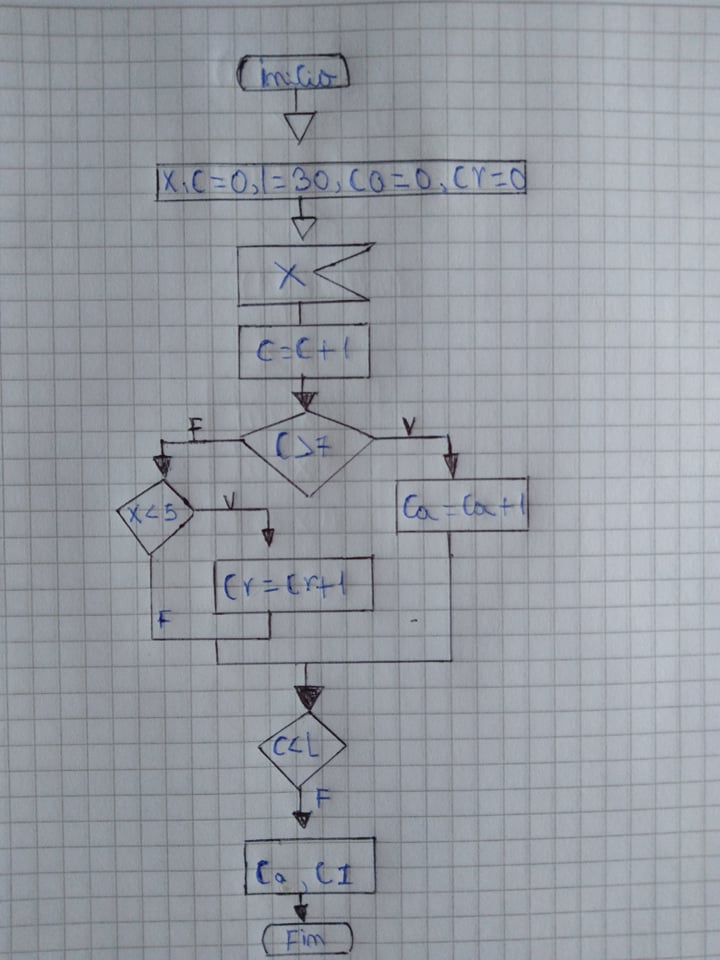 inicio
X, C=0, l=30, Ca=0, Cr=0
X
C=C+1
F
V
C>7
X<5
V
Ca=Ca+1
Cr=Cr+1
F
C<L
F
Ca, CI
Fim